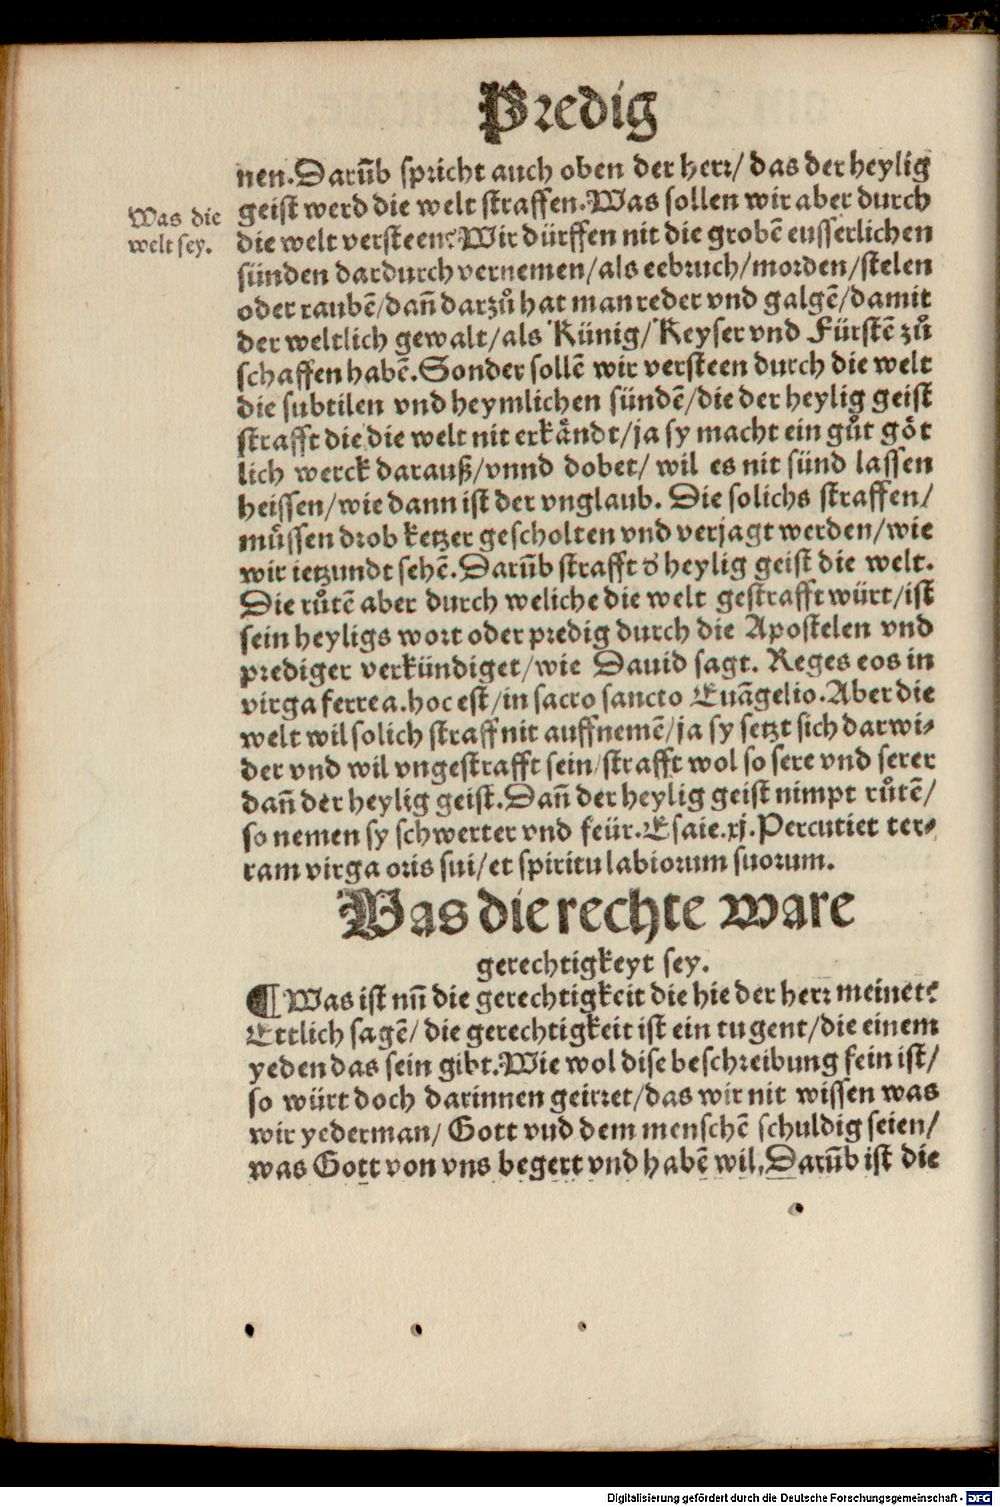 Predig
nen. Darūb spricht auch oben der herr/ das der heylig
Was die
welt sey.
geist werd die welt straffen. Was sollen wir aber durch
die welt versteen? Wir dürffen nit die grobē eusserlichen
sünden dardurch vernemen/ als eebruch/ morden/ stelen
oder raubē/ dañ darzů hat man reder vnd galgē/ damit
der weltlich gewalt/ als Künig/ Keyser vnd Fürstē zů
schaffen habē. Sonder sollē wir versteen durch die welt
die subtilen vnd heymlichen sündē/ die der heylig geist
strafft die die welt nit erkåndt/ ja sy macht ein gůt göt
lich werck darauß/ vnnd dobet/ wil es nit sünd lassen
heissen/ wie dann ist der vnglaub. Die solichs straffen/
müssen drob ketzer gescholten vnd verjagt werden/ wie
wir ietzundt sehē. Darūb strafft d' heylig geist die welt.
Die růtē aber durch weliche die welt gestrafft würt/ ist
sein heyligs wort oder predig durch die Apostelen vnd
prediger verkündiget/ wie Dauid sagt. Reges eos in
virga ferrea. hoc est/ in sacro sancto Euāgelio. Aber die
welt wil solich straff nit auffnemē/ ja sy setzt sich darwi⸗
der vnd wil vngestrafft sein/ strafft wol so sere vnd serer
dañ der heylig geist. Dañ der heylig geist nimpt růtē/
so nemen sy schwerter vnd feür. Esaie. xj. Percutiet ter⸗
ram virga oris sui/ et spiritu labiorum suorum.
Was die rechte ware
gerechtigkeyt sey.
¶ Was ist nū die gerechtigkeit die hie der herr meinet?
Ettlich sagē/ die gerechtigkeit ist ein tugent/ die einem
yeden das sein gibt. Wie wol dise beschreibung fein ist/
so würt doch darinnen geirret/ das wir nit wissen was
wir yederman/ Gott vnd dem menschē schuldig seien/
was Gott von vns begert vnd habē wil. Darūb ist die
Digitalisierung gefördert durch die Deutsche Forschungsgemeinschaft - DFG